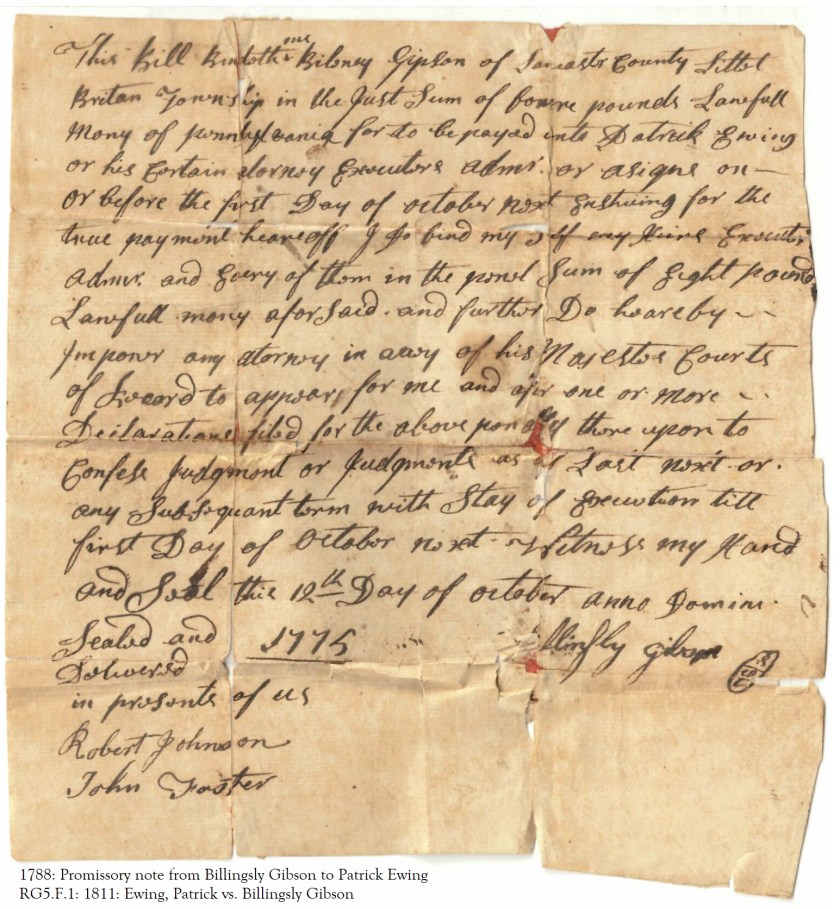 This Bill Bindeth me Bilsney Gipson of Lancastr County Littel
Britan Township in the Just Sum of fowre pounds Lawfull
Mony of pennsylvania for to be payed unto Patrick Ewing
or his Certain atorney Executors admr. or asigns on —
or before the first Day of october next Enshuing for the
true payment heareoff I Do bind my self my Heirs Executrs
admrs. and Every of them in the penel Sum of Eight pounds
Lawfull mony aforSaid. and further Do heareby
Impower any atorney in any of his Majestes Courts
of Record to appear for me and after one or more
Declarations filed for the above penalty there upon to
Confess Judgment or Judgments as of Last next or.
any Subsequant term with Stay of Execution till
first Day of October next Witness my Hand
and Seal this 12th Day of october anno Domini
Sealed and 1775 Gibson
Delivered
in presents of us
Robert Johnson
John Foster
1788: Promissory note from Billingsly Gibson to Patrick Ewing
RG5.F.1: 1811: Ewing, Patrick vs. Billingsly Gibson